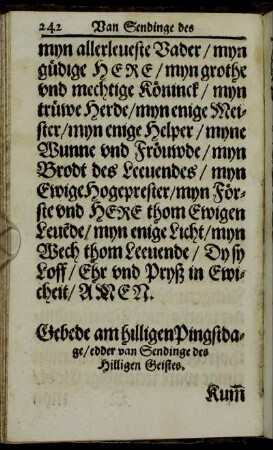 242 Van Sendinge des
myn allerleueste Vader / myn
güdige HERE / myn grothe
vnd mechtige Köninck / myn
trüwe Herde / myn enige Mei-
ster / myn enige Helper / myne
Wunne vnd Fröuwde / myn
Brodt des Leeuendes / myn
Ewige Hogeprester / myn För-
ste vnd HERE thom Ewigen
Leuēde / myn enige Licht / myn
Wech thom Leeuende / Dy sy
Loff / Ehr vnd Pryß in Ewi-
cheit / AMEN.
Gebede am hilligen Pingstda-
ge / edder van Sendinge des
Hilligen Geistes.
Kum̄